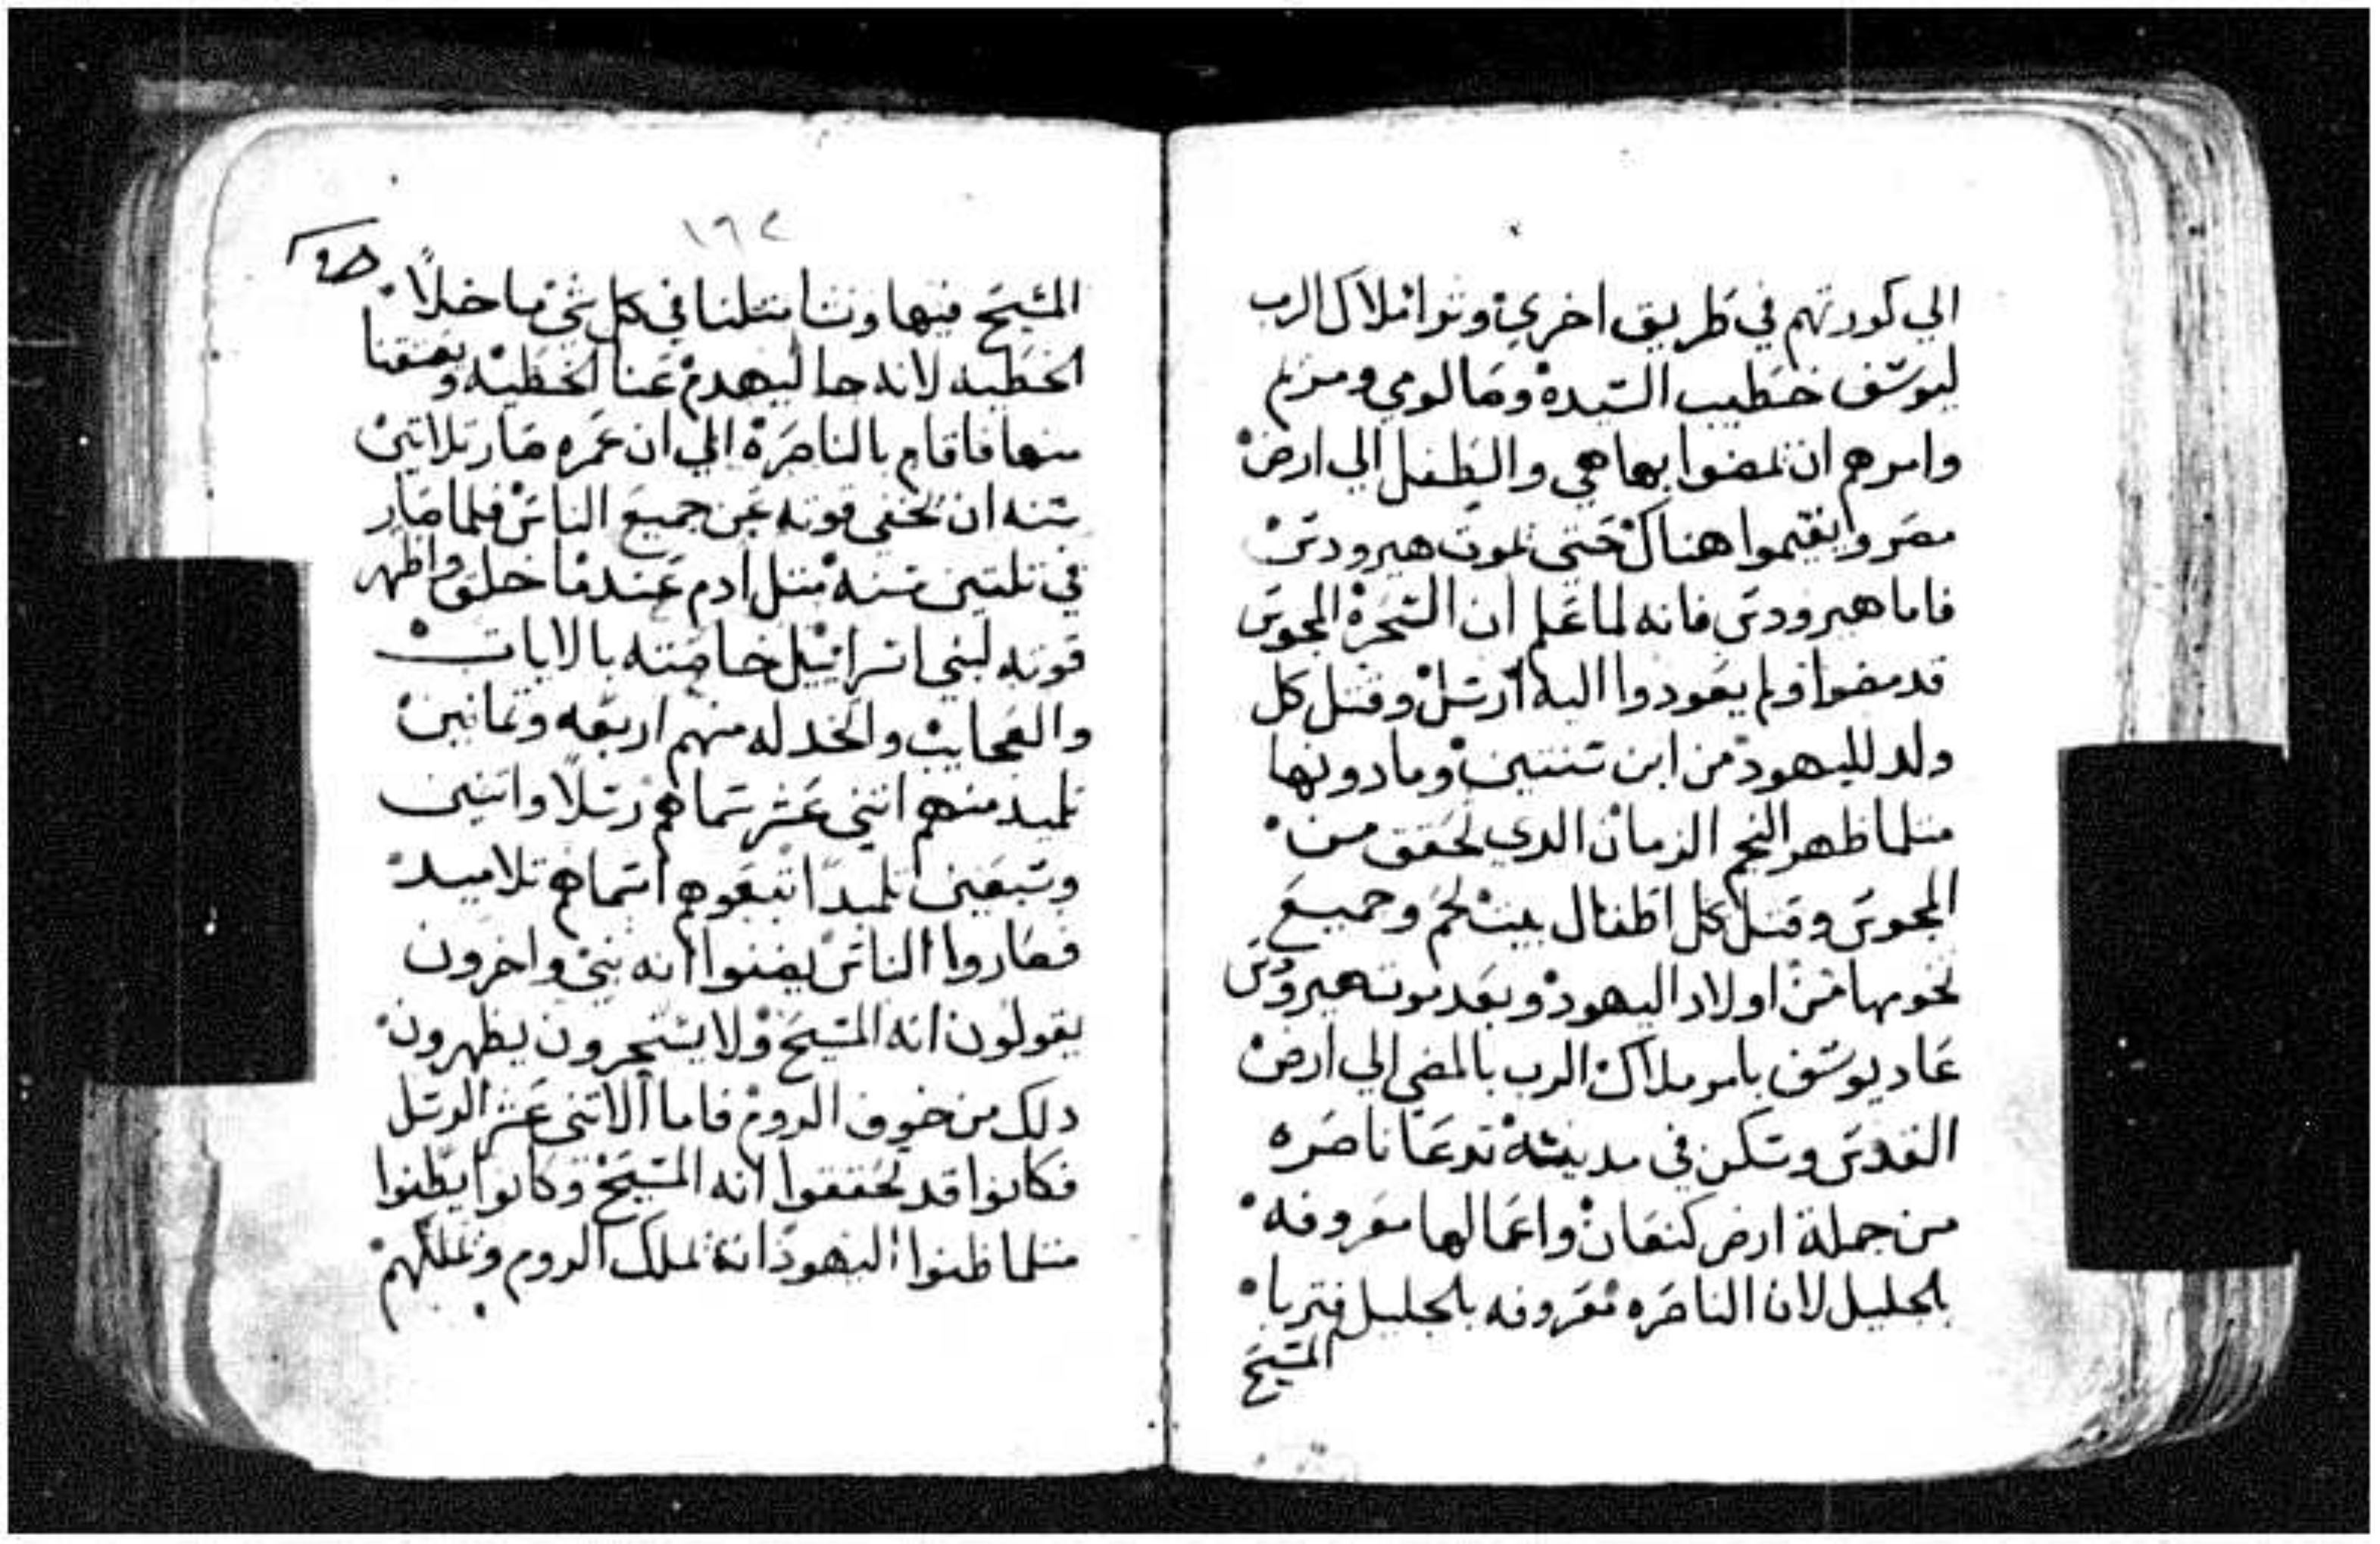 الي كورتهم في طريق اخري وتوا ملاك الرب
ليوسف خطيب السيدة وصالومي ومريم
وامرهم ان تمضوا بها هي والطفل الي ارض
مصر وايقيموا هناك حتي تموت هيرودس
فاما هيرودس فانه لما علم ان السحرة المجوس
قد مضوا ولم يعودوا اليه ارسل وقتل كل
ولد لليهود من ابن سنتين وما دونها
متلما ظهر النجم الزمان الدي تحقق من
المجوس وقتل كل اطفال بيت لحم وجميع
تخومها من اولاد اليهود وبعد موته هيرودس
عاد يوسف بامر ملاك الرب بالمضي الي ارض
القدس وسكن في مدينة تدعا ناصره
من جملة ارض كنعان واعمالها معروفه
بلجليل لان الناصره معروفه بلجليل فتربا
المسيح
١٦٢
المسيح فيها ونشا متلنا في كل شي ما خلا
الخطيه لانه جا ليهدم عنا الخطيه ويعتقنا
منها فاقام بالناصرة الي ان عمره صار تلاتين
سنه ان تخفي قوته عن جميع الناس فلما صار
في تلتين سنه متل ادم عندما خلق واظهر
قوته لبني اسراييل خاصته بالايات
والعجايب واتخد له منهم اربعه وتمانين
تلميد منهم اتني عشر سماهم رسلا واتنين
وسبعين تلميدا اتبعوهم اسماهم تلاميد
فصاروا الناس يضنوا انه نبي واخرون
يقولون انه المسيح ولا يستجرون يظهرون
دلك من خوف الروم فاما الاتني عشر الرسل
فكانوا قد تحققوا انه المسيح وكانوا يظنوا
متلما ظنوا اليهود انه تملك الروم وتملكهم